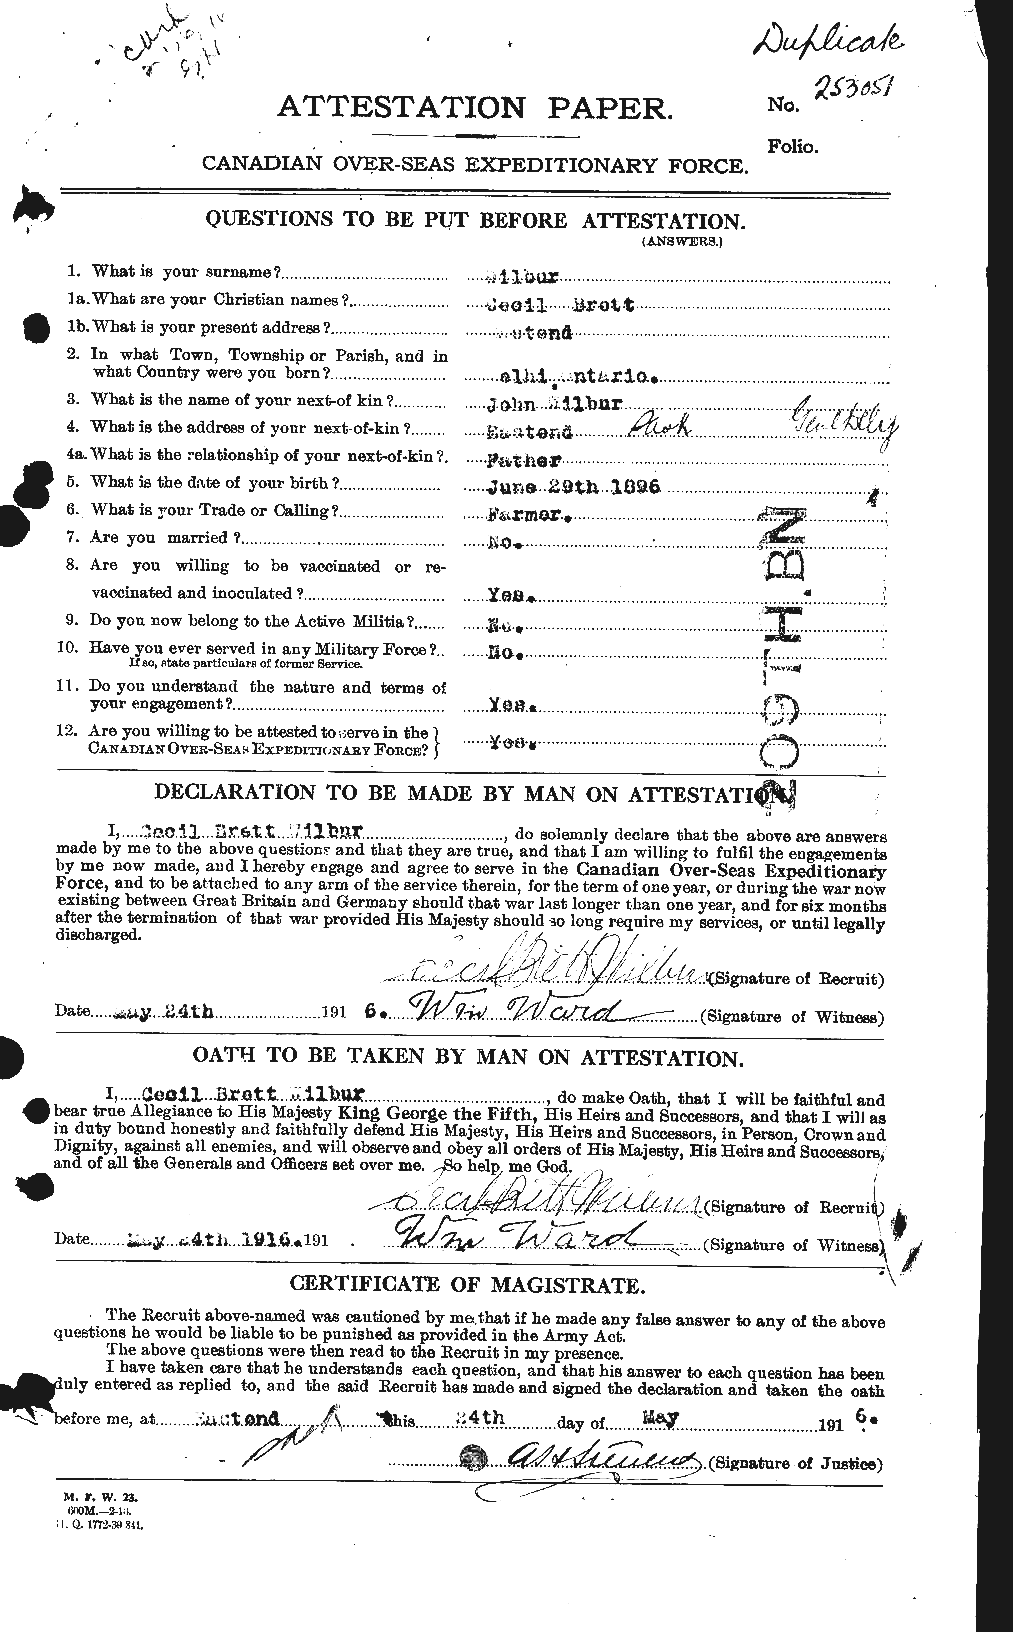 Duplicate
ATTESTATION PAPER.
No. 253051
Folio.
CANADIAN OVER-SEAS EXPEDITIONARY FORCE.
QUESTIONS TO BE PUT BEFORE ATTESTATION.
(ANSWERS.)
1. What is your surname? Wilbur
1a. What are your Christian names? Cecil Brett
1b. What is your present address? Eastend
2. In what Town, Township or Parish, and in
what Country were you born? elhi, Ontario.
3. What is the name of your next-of kin? John Wilbur
4. What is the address of your next-of-kin? Eastend Sask
4a. What is the relationship of your next-of-kin? Father
5. What is the date of your birth? June 29th 1896
6. What is your Trade or Calling? Farmer.
7. Are you married? No.
8. Are you willing to be vaccinated or re-
vaccinated and inoculated? Yes.
9. Do you now belong to the Active Militia? No.
10. Have you ever served in any Military Force? No.
If so, state particulars of former Service.
11. Do you understand the nature and terms of
your engagement? Yes.
12. Are you willing to be attested to serve in the
CANADIAN OVER-SEAS EXPEDITIONARY FORCE? Yes.
209TH. BN
DECLARATION TO BE MADE BY MAN ON ATTESTATION.
I, Cecil Brett Wilbur, do solemnly declare that the above are answers
made by me to the above questions and that they are true, and that I am willing to fulfil the engagements
by me now made, and I hereby engage and agree to serve in the Canadian Over-Seas Expeditionary
Force, and to be attached to any arm of the service therein, for the term of one year, or during the war now
existing between Great Britain and Germany should that war last longer than one year, and for six months
after the termination of that war provided His Majesty should so long require my services, or until legally
discharged.
Cecil Brett Wilbur (Signature of Recruit)
Date May 24th 191 6. Wm Ward (Signature of Witness)
OATH TO BE TAKEN BY MAN ON ATTESTATION.
I, Cecil Brett Wilbur, do make Oath, that I will be faithful and
bear true Allegiance to His Majesty King George the Fifth, His Heirs and Successors, and that I will as
in duty bound honestly and faithfully defend His Majesty, His Heirs and Successors, in Person, Crown and
Dignity, against all enemies, and will observe and obey all orders of His Majesty, His Heirs and Successors,
and of all the Generals and Officers set over me. So help me God.
Cecil Brett Wilbur (Signature of Recruit)
Date May 24th 1916. 191 . Wm Ward (Signature of Witness)
CERTIFICATE OF MAGISTRATE.
The Recruit above-named was cautioned by me that if he made any false answer to any of the above
questions he would be liable to be punished as provided in the Army Act.
The above questions were then read to the Recruit in my presence.
I have taken care that he understands each question, and that his answer to each question has been
duly entered as replied to, and the said Recruit has made and signed the declaration and taken the oath
before me, at Eastend this 24th day of May 191 6.
(Signature of Justice)
M. F. W. 23.
600M.—2-16.
H. Q. 1772-39 841.